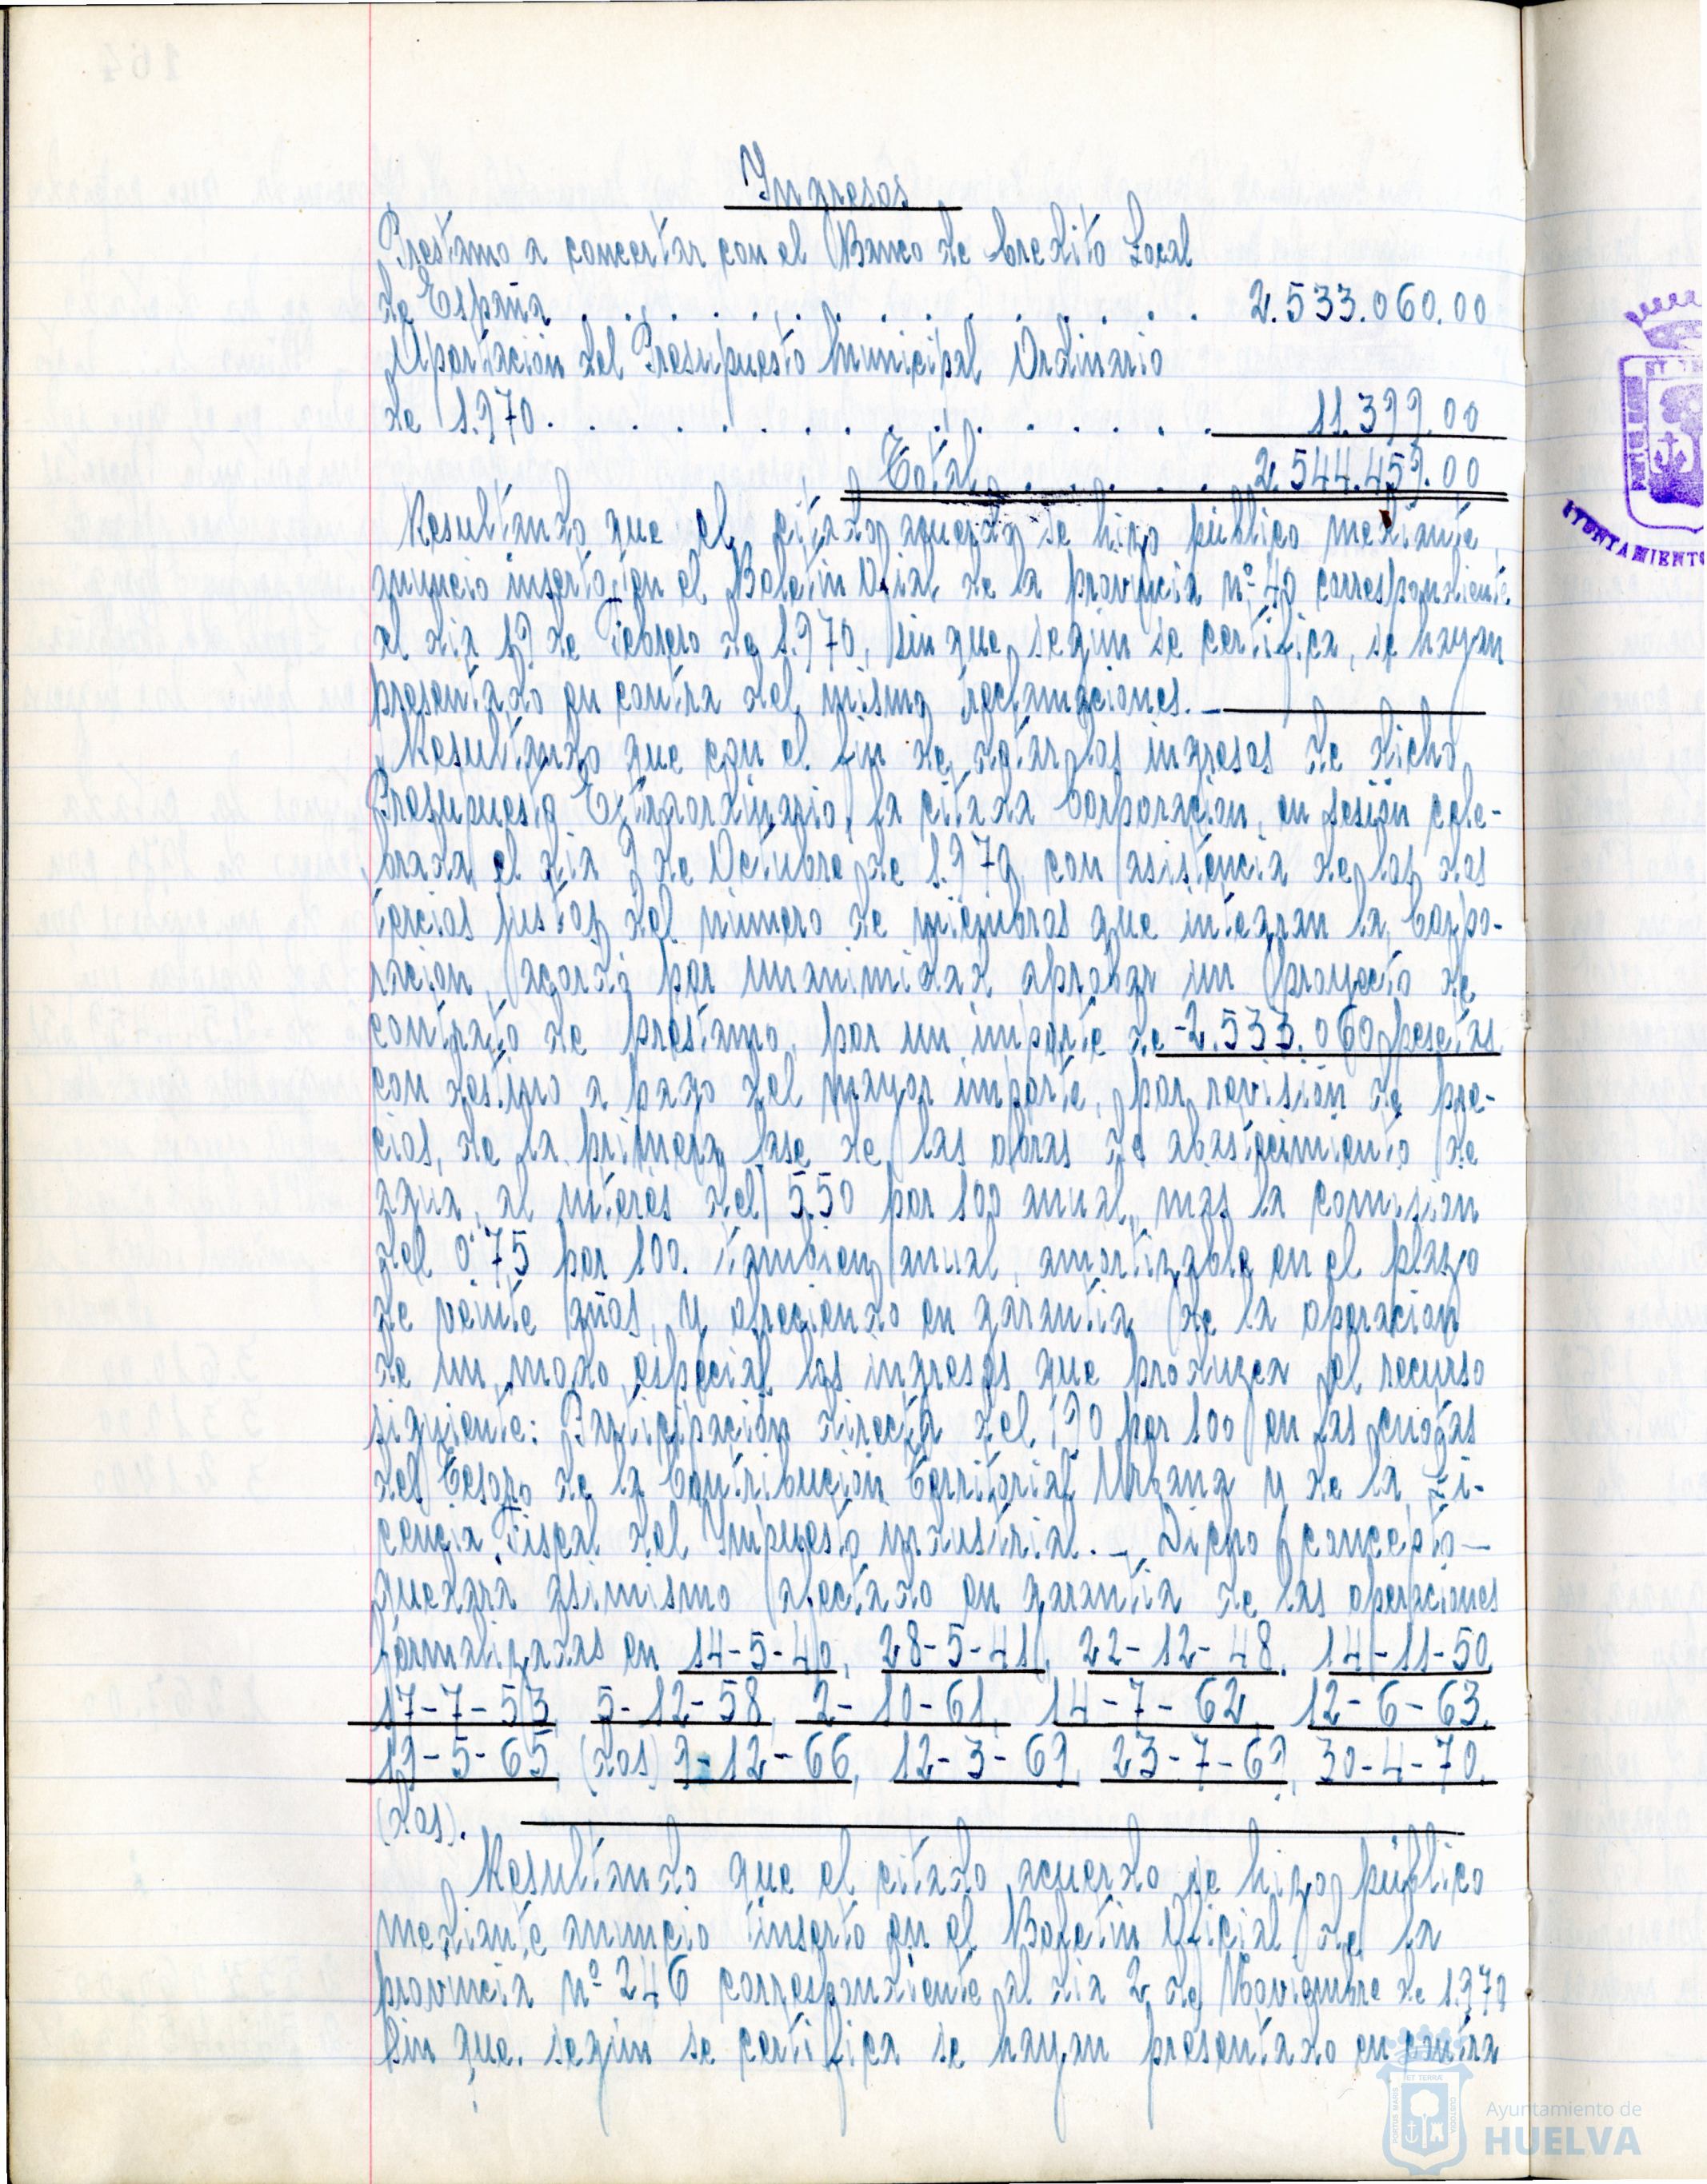 Ingresos
Prestamo a concertar con el Banco de Credito Local
de España . . . . . . . . . . . . 2.533.060.00
Aportación del Presupuesto Municipal Ordinario
de 1.970. . . . . . . . . . . . . 11.399.00
Total . . . . . . 2.544.459.00
Resultando que el citado acuerdo se hizo público mediante
anuncio inserto en el Boletin Ofial de la provincia nº 40 correspondiente
al dia 19 de Febrero de 1.970, sin que, según se certifica, se hayan
presentado en contra del mismo reclamaciones. —
Resultando que con el fin de dotar los ingresos de dicho
Presupuesto Extraordinario, la citada Corporación, en sesión cele-
brada el dia 9 de Octubre de 1.970, con asistencia de los dos
tercios justos del número de miembros que integran la Corpo-
ración, acordó por unanimidad aprobar un proyecto de
contrato de prestamo, por un importe de -2.533.060 pesetas
con destino a pago del mayor importe, por revisión de pre-
cios, de la primera fase de las obras de abastecimiento de
agua, al interés del 5.50 por 100 anual, mas la comision
del 0'75 por 100. tambien anual, amortizable en el plazo
de veinte años, y ofreciendo en garantia de la operacion
de un modo especial los ingresos que produzca el recurso
siguiente: Participación directa del 90 por 100 en las cuotas
del Tesoro de la Contribución Territorial Urbana y de la Li-
cencia Fiscal del Impuesto industrial. - Dicho concepto —
quedará asimismo afectado en garantia de las operaciones
formalizadas en 14-5-40, 28-5-41, 22-12-48, 14-11-50,
17-7-53, 5-12-58, 2-10-61, 14-7-62, 12-6-63,
19-5-65, (dos) 9-12-66, 12-3-69, 23-7-69, 30-4-70,
(dos). —
Resultando que el citado acuerdo se hizo público
mediante anuncio inserto en el Boletin Oficial de la
provincia nº 246 correspondiente al dia 2 de Noviembre de 1.970
sin que, según se certifica se hayan presentado en contra
AYUNTAMIENTO
Ayuntamiento de
HUELVA